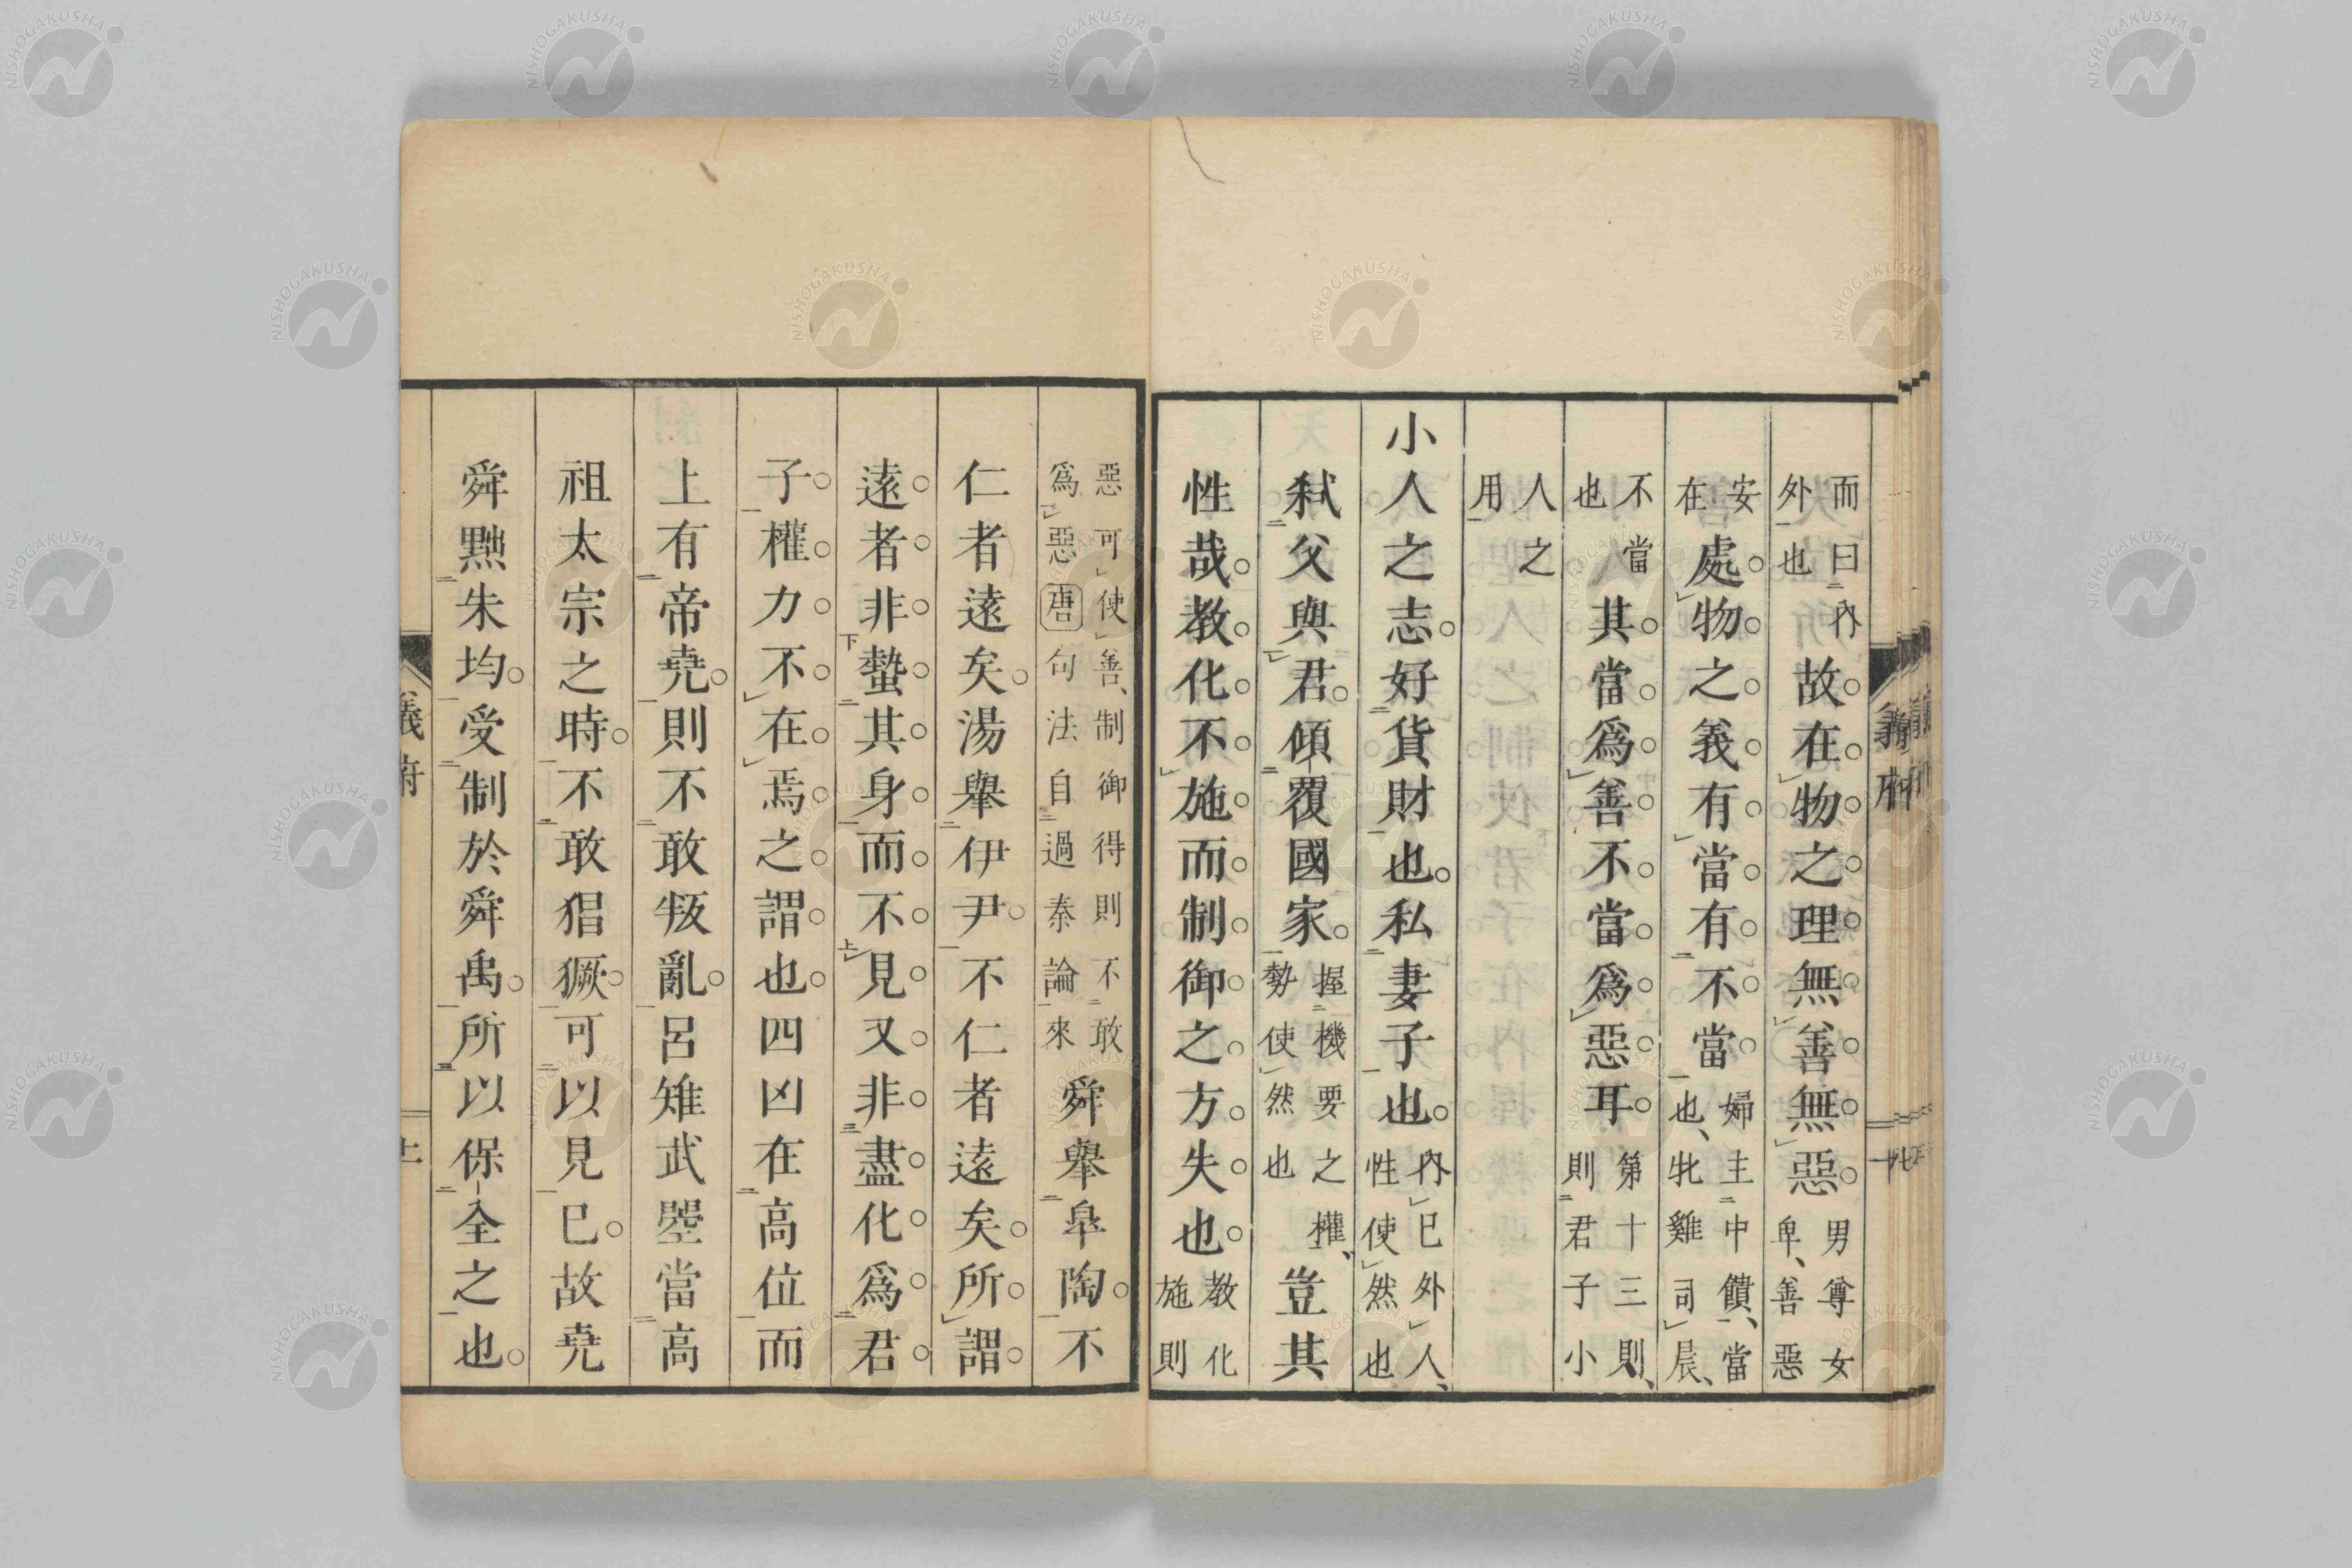 而曰內外也故在物之理無善無惡男尊女卑、善惡
安在處物之義有當有不當婦主中饋、當也、牝雞司晨、
不當也其當爲善不當爲惡耳第十三則、則君子小
人之用
小人之志好貨財也私妻子也內已外人、性使然也
弒父與君傾覆國家握機要之權、勢使然也豈其
性哉教化不施而制御之方失也教化施則
惡可使善、制御得則不敢爲惡唐句法自過秦論來舜舉皐陶不
仁者遠矣湯舉伊尹不仁者遠矣所謂
遠者非蟄其身而不見又非盡化爲君
子權力不在焉之謂也四凶在高位而
上有帝堯則不敢叛亂呂雉武曌當高
祖太宗之時不敢猖獗可以見已故堯
舜黜朱均受制於舜禹所以保全之也
義府
義府
NISHOGAKUSHA